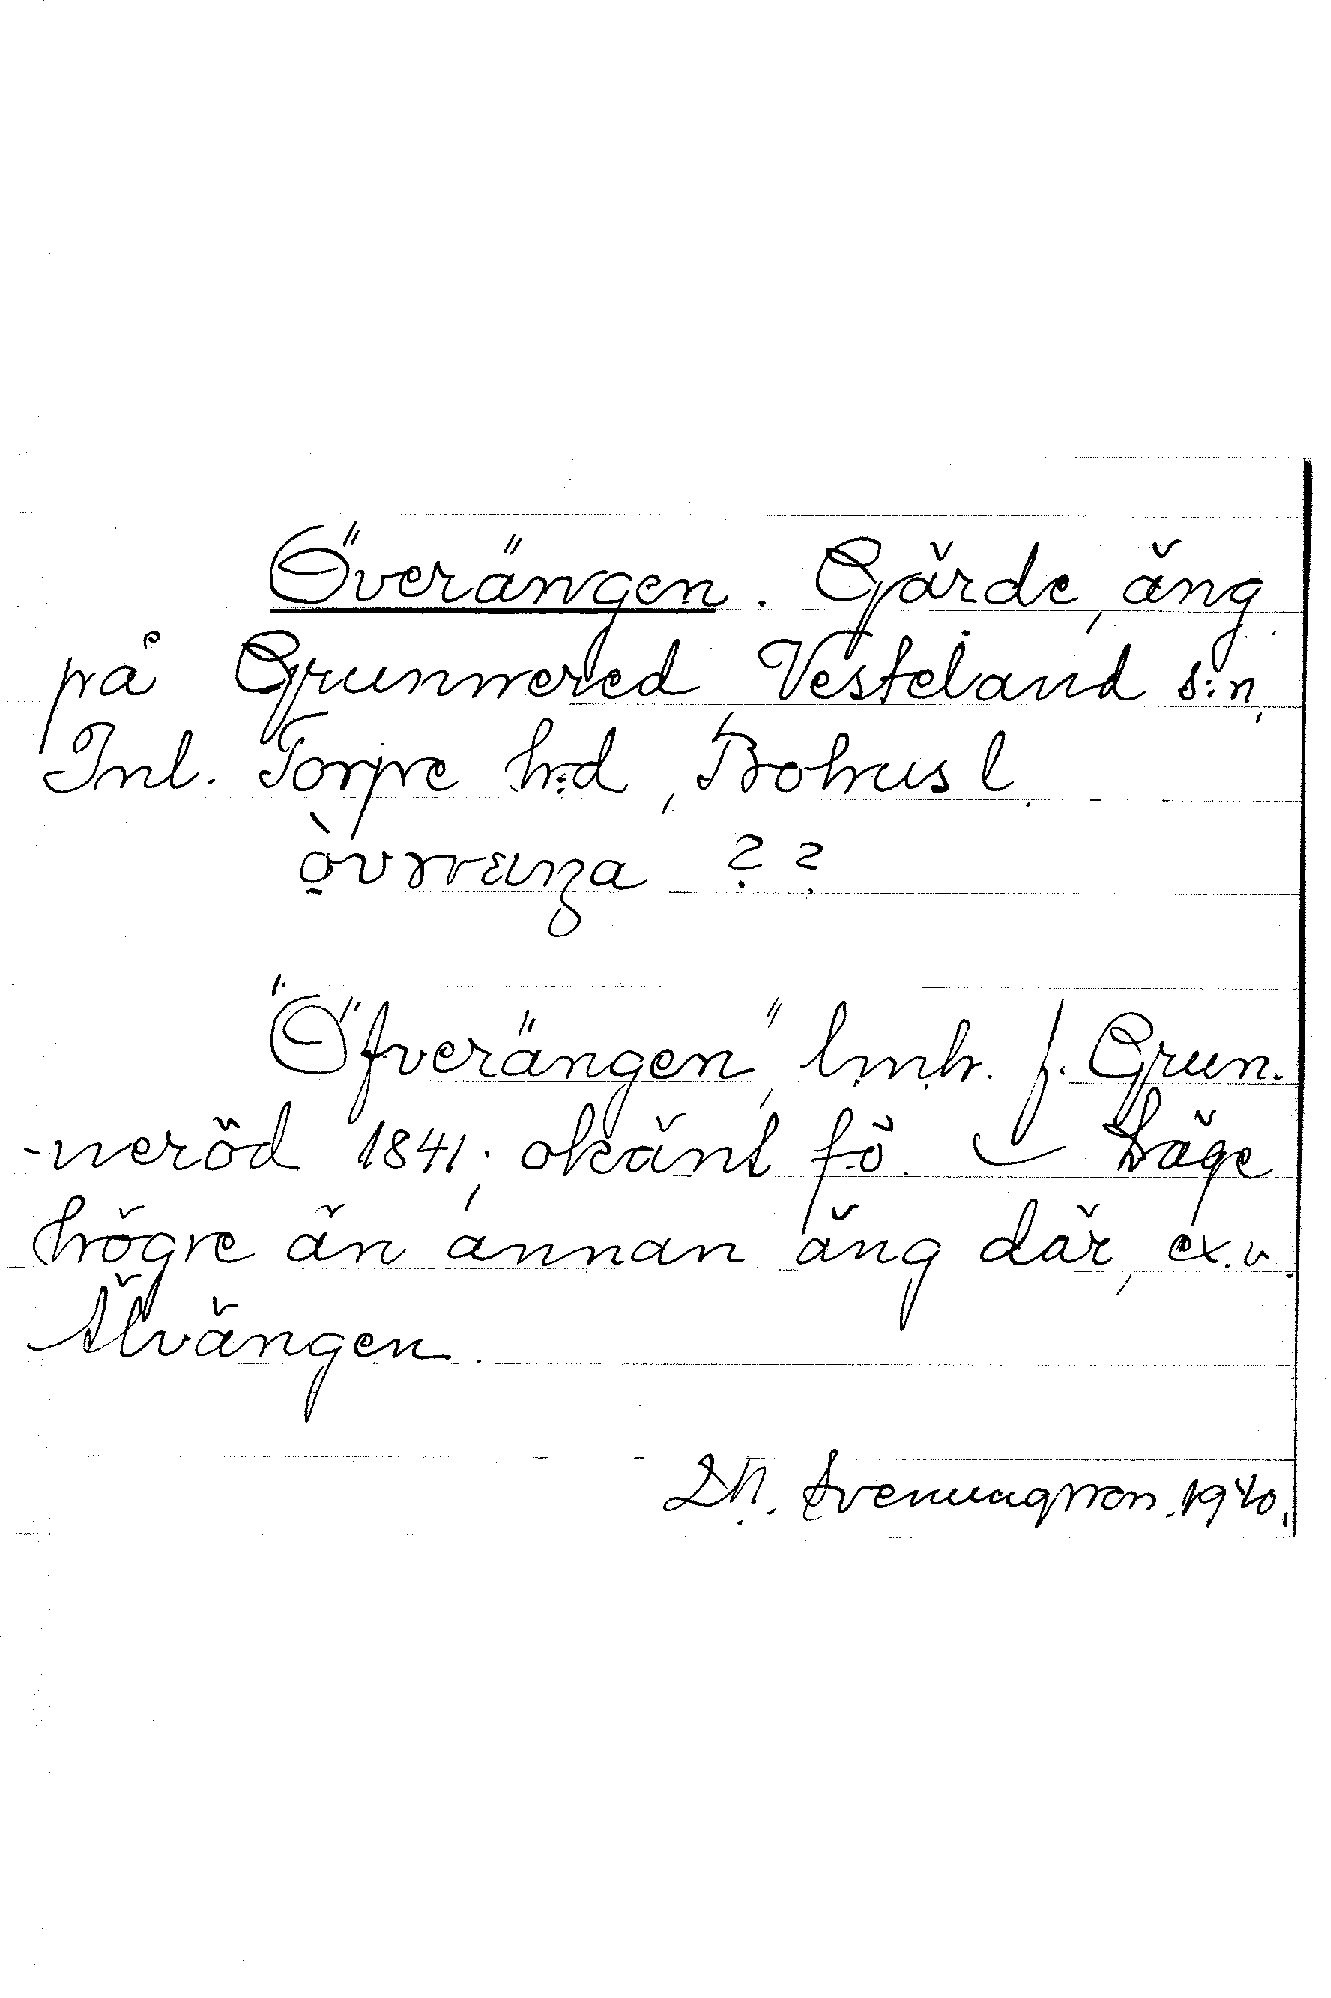 Överängen. Gärde, äng
på Grunnered Vesteland s:n,
Inl. Torpe h:d, Bohusl.
?? 
"Öfverängen", lmh. f. Grun-
-neröd 1841; okänt fö. Läge
högre än annan äng där, ex.v.
Älvängen.
Svenungsson. 1940.